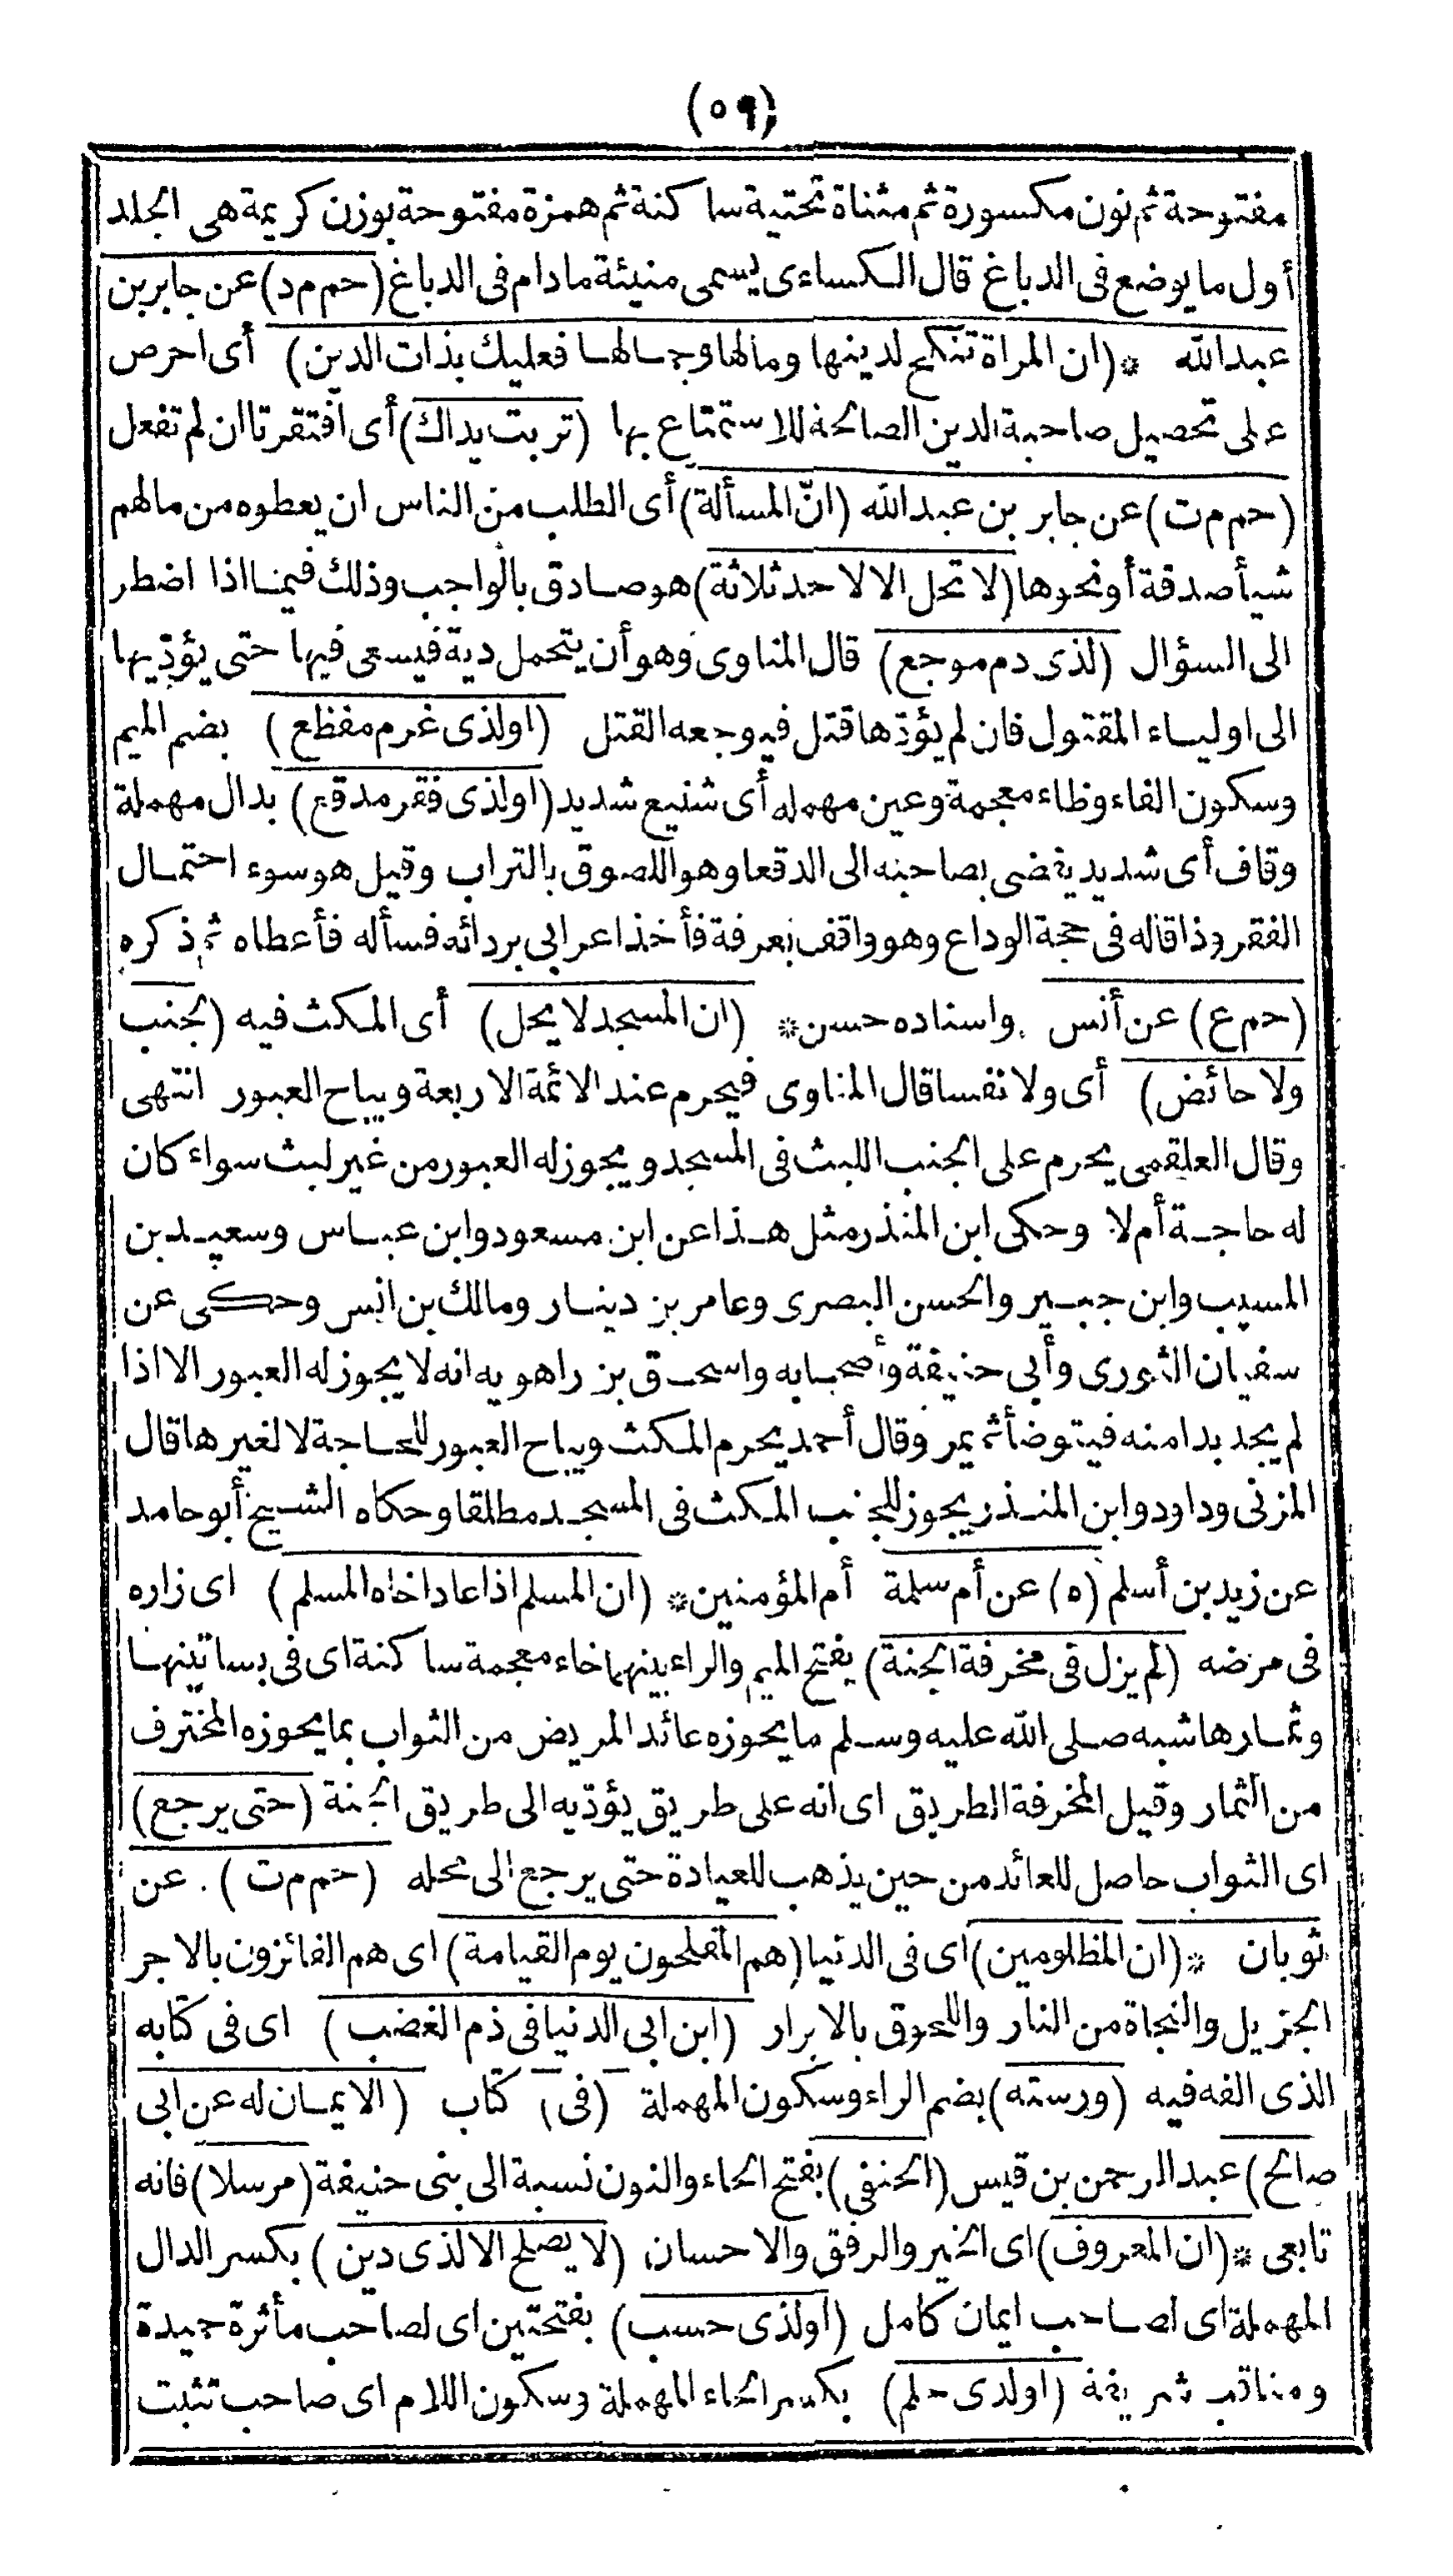 (٥٩)
مفتوحة ثم نون مكسورة ثم مثناة تحتية ساكنة ثم همزة مفتوحة بوزن كريمة هى الجلد
أول ما يوضع فى الدباغ قال الكساءى يسمى منيئة مادام فى الدباغ (حم م د) عن جابر بن
عبدالله * (ان المراة تنكح لدينها ومالها وجمالها فعليك بذات الدين) أى احرص
على تحصيل صاحبة الدين الصالحة للاستمتاع بها (تربت يداك) أى افتقرتا ان لم تفعل
(حم م ت) عن جابر بن عبدالله (انّ المسألة) أى الطلب من الناس ان يعطوه من مالهم
شيأ صدقة أو نحوها (لا تحل الا لاحد ثلاثة) هو صادق بالواجب وذلك فيما اذا اضطر
الى السؤال (لذى دم موجع) قال المناوى وهو أن يتحمل دية فيسعى فيها حتى يؤدّيها
الى اولياء المقتول فان لم يؤدّها قتل فيوجعه القتل (اولذى غرم مفظع) بضم الميم
وسكون الفاء وظاء معجمة وعين مهمله أى شنيع شديد (اولذى فقر مدقع) بدال مهملة
وقاف أى شديد يفضى بصاحبه الى الدقعا وهو اللصوق بالتراب وقيل هو سوء احتمال
الفقر وذا قاله فى حجة الوداع وهو واقف بعرفة فأخذ اعرابى بردائه فسأله فأعطاه ثم ذكره
(حم ع) عن أنس واسناده حسن * (ان المسجد لا يحل) أى المكث فيه (لجنب
ولا حائض) أى ولا نفسا قال المناوى فيحرم عند الائمة الاربعة ويباح العبور انتهى
وقال العلقمى يحرم على الجنب اللبث فى المسجد ويجوز له العبور من غير لبث سواء كان
له حاجة أم لا وحكى ابن المنذر مثل هذا عن ابن مسعود وابن عباس وسعيد بن
المسيب وابن جبير والحسن البصرى وعامر بن دينار ومالك بن انس وحكى عن
سفيان الثورى وأبى حنيفة وأصحابه واسحق بن راهويه انه لا يجوز له العبور الا اذا
لم يجد بدا منه فيتوضأ ثم يمر وقال أحمد يحرم المكث ويباح العبور للحاجة لا لغيرها قال
المزنى وداود وابن المنذر يجوز للجنب المكث فى المسجد مطلقا وحكاه الشيخ أبو حامد
عن زيد بن أسلم (ه) عن أم سلمة أم المؤمنين * (ان المسلم اذا عاد اخاه المسلم) اى زاره
فى مرضه (لم يزل فى مخرفة الجنة) بفتح الميم والراء بينهما خاء معجمة ساكنة اى فى بساتينها
وثمارها شبه صلى الله عليه وسلم ما يحوزه عائد المريض من الثواب بما يحوزه المخترف
من الثمار وقيل المخرفة الطريق اى انه على طريق يؤدّيه الى طريق الجنة (حتى يرجع)
اى الثواب حاصل للعائد من حين يذهب للعيادة حتى يرجع الى محله (حم م ت) . عن
ثوبان * (ان المظلومين) اى فى الدنيا (هم المفلحون يوم القيامة) اى هم الفائزون بالاجر
الجزيل والنجاة من النار واللحوق بالابرار (ابن ابى الدنيا فى ذم الغضب) اى فى كتابه
الذى الفه فيه (ورسته) بضم الراء وسكون المهملة (فى) كتاب (الايمان له عن ابى
صالح) عبدالرحمن بن قيس (الحنفى) بفتح الحاء والنون نسبة الى بنى حنيفة (مرسلا) فانه
تابعى * (ان المعروف) اى الخير والرفق والاحسان (لا يصلح الا لذى دين) بكسر الدال
المهملة اى لصاحب ايمان كامل (اولذى حسب) بفتحتين اى لصاحب مأثرة حميدة
ومناقب شريفة (اولذى حلم) بكسر الحاء المهملة وسكون اللام اى صاحب تثبت